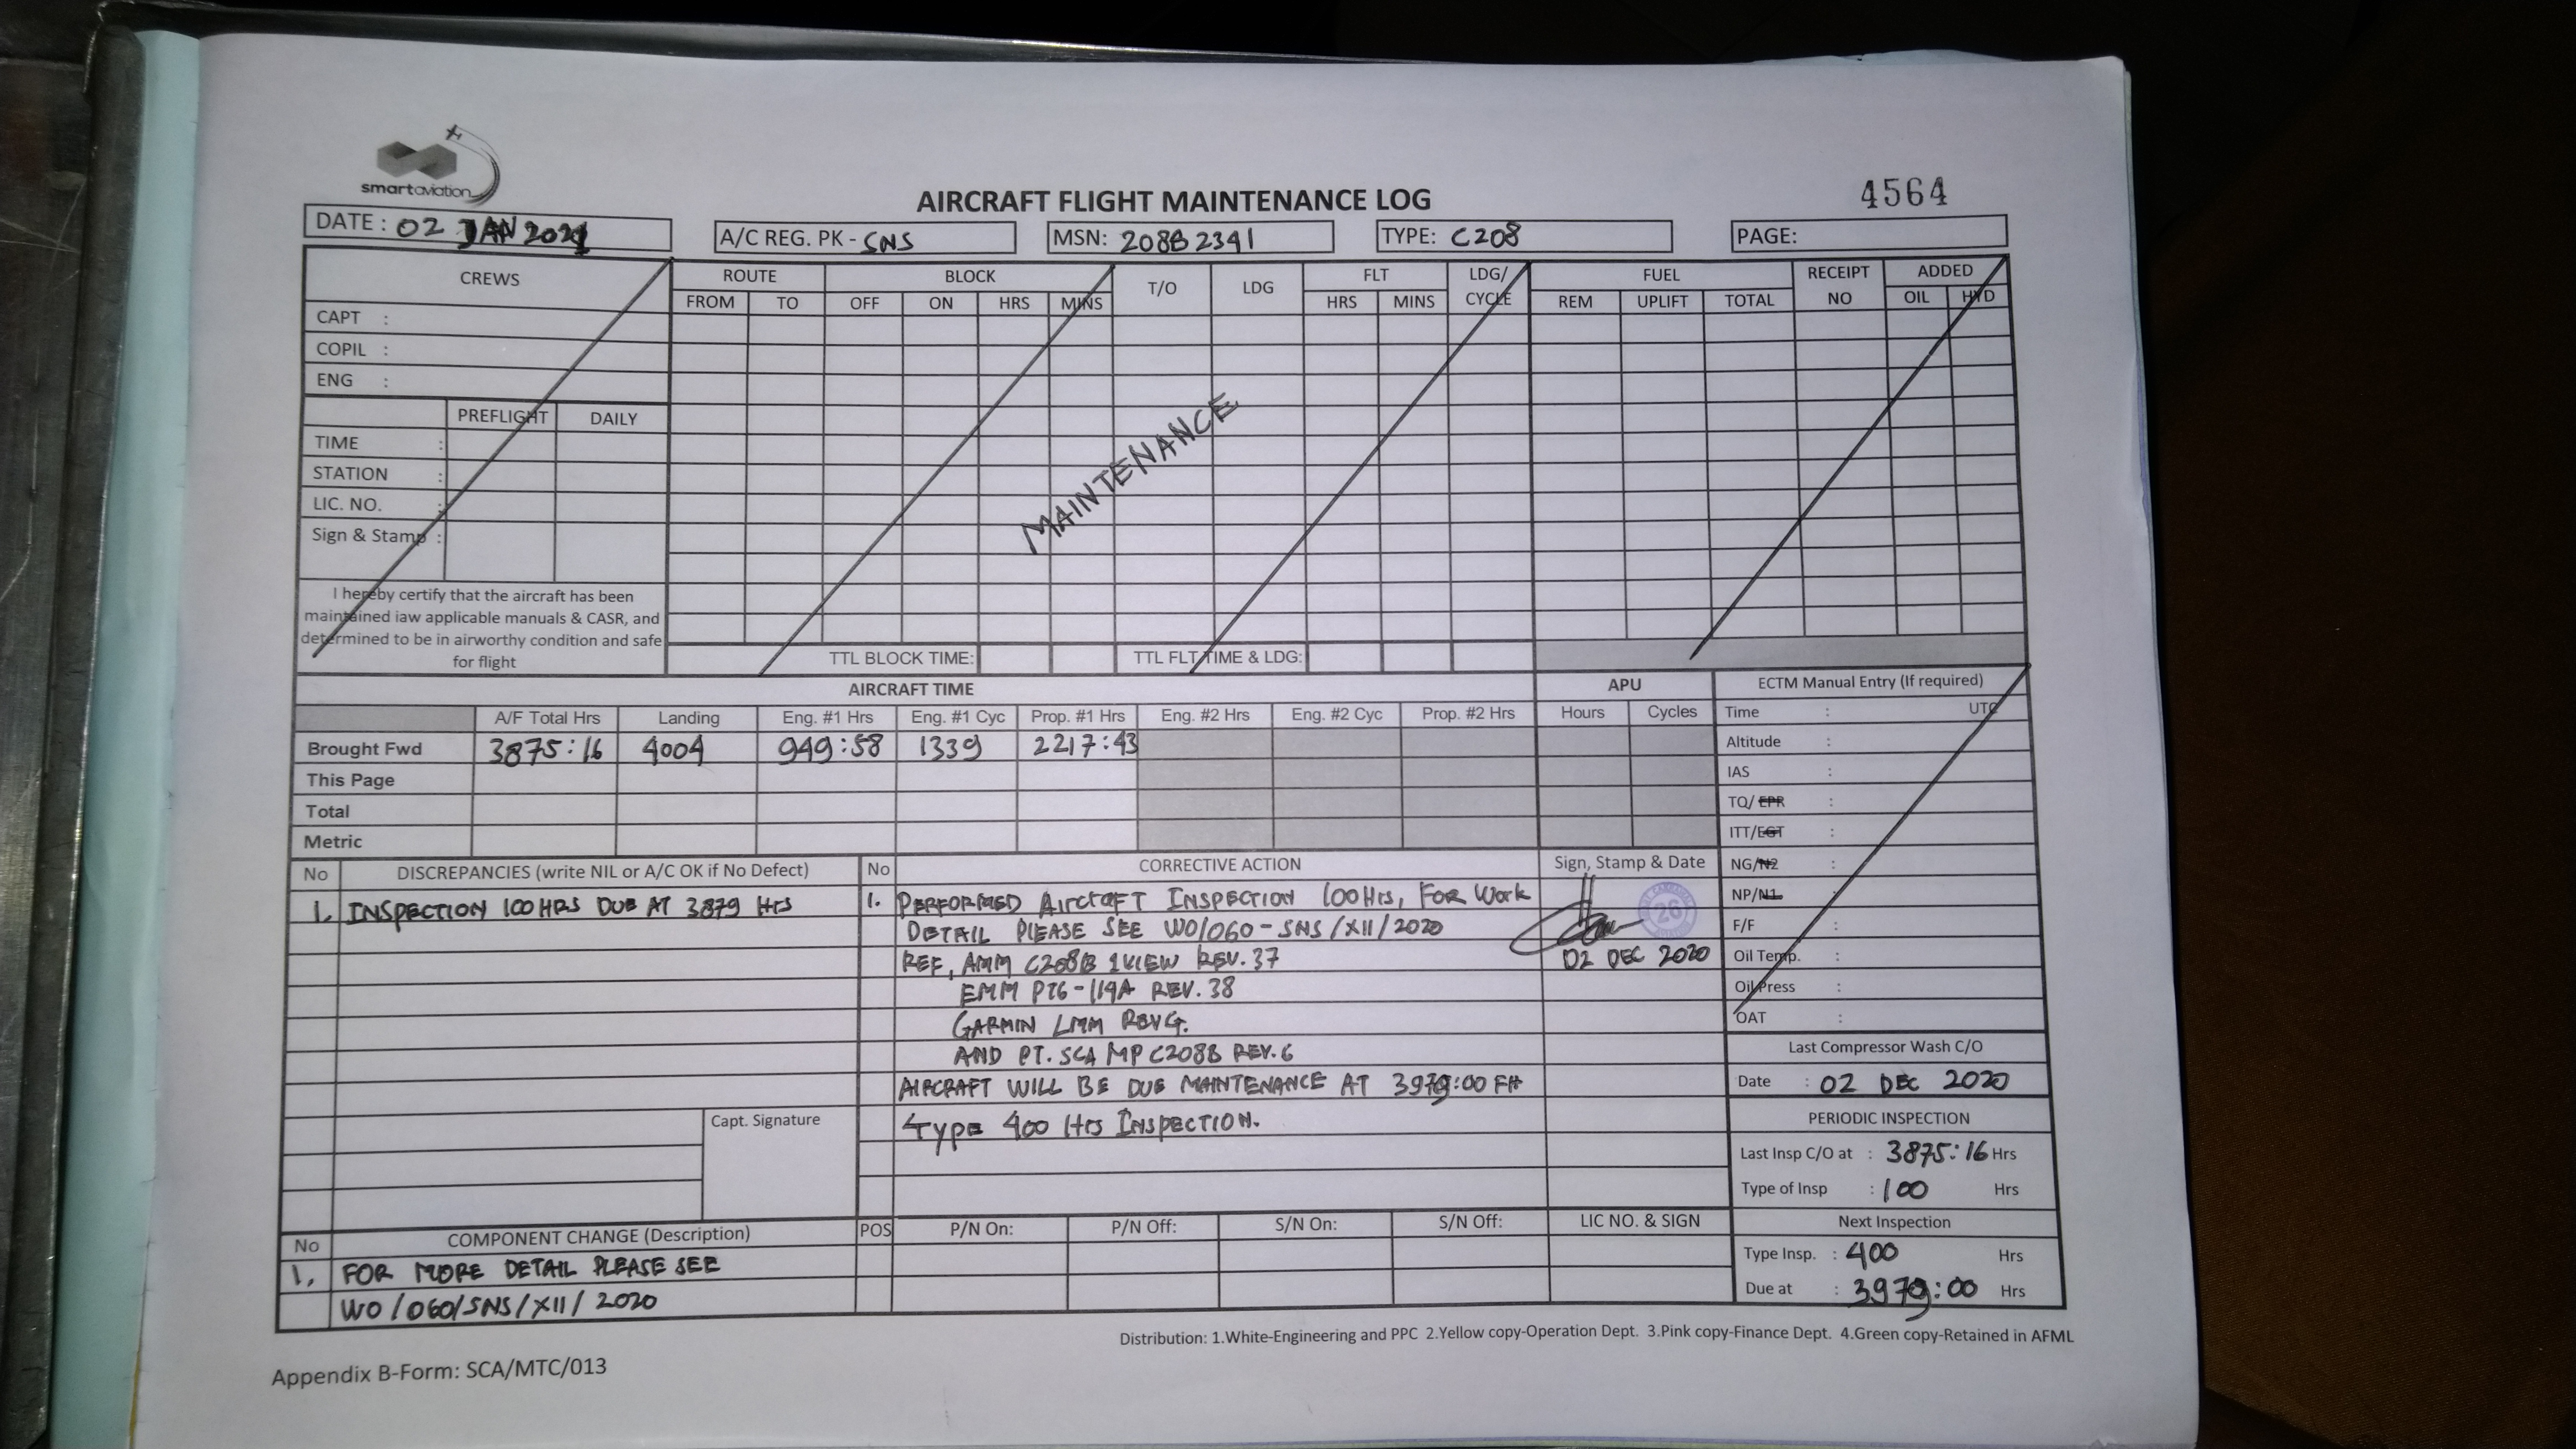 smartaviation
AIRCRAFT FLIGHT MAINTENANCE LOG
4564
DATE : 02 JAN 2021
A/C REG. PK - SNS
MSN: 208B2391
TYPE: C208
PAGE:
CREWS
CAPT :
COPIL :
ENG :
PREFLIGHT DAILY
TIME :
STATION :
LIC. NO. :
Sign & Stamp :
I hereby certify that the aircraft has been
maintained iaw applicable manuals & CASR, and
determined to be in airworthy condition and safe
for flight
ROUTE BLOCK T/O LDG FLT LDG/ CYCLE FUEL RECEIPT NO ADDED
FROM TO OFF ON HRS MINS HRS MINS REM UPLIFT TOTAL OIL HYD
MAINTENANCE
TTL BLOCK TIME: TTL FLT TIME & LDG:
AIRCRAFT TIME
APU
A/F Total Hrs Landing Eng. #1 Hrs Eng. #1 Cyc Prop. #1 Hrs Eng. #2 Hrs Eng. #2 Cyc Prop. #2 Hrs Hours Cycles
Brought Fwd 3875:16 4004 949:58 1339 2217:43
This Page
Total
Metric
ECTM Manual Entry (If required)
Time : UTC
Altitude :
IAS :
TQ/EPR :
ITT/EGT :
NG/N2 :
NP/N1 :
F/F :
Oil Temp. :
Oil Press :
OAT :
No DISCREPANCIES (write NIL or A/C OK if No Defect)
1. INSPECTION 100 HRS DUE AT 3879 HRS
Capt. Signature
No CORRECTIVE ACTION
1. PERFORMED AIRCRAFT INSPECTION 100 Hrs, FOR WORK
DETAIL PLEASE SEE WO/060-SNS/XII/2020
REF, AMM C208B 1VIEW REV.37
EMM PT6-114A REV.38
GARMIN LMM
AND PT. SCA MP C208B REV.6
AIRCRAFT WILL BE DUE MAINTENANCE AT 3979:00 FH
TYPE 400 Hrs INSPECTION.
Sign, Stamp & Date
26
02 DEC 2020
Last Compressor Wash C/O
Date : 02 DEC 2020
PERIODIC INSPECTION
Last Insp C/O at : 3875:16 Hrs
Type of Insp : 100 Hrs
Next Inspection
Type Insp. : 400 Hrs
Due at : 3979:00 Hrs
No COMPONENT CHANGE (Description) POS P/N On: P/N Off: S/N On: S/N Off: LIC NO. & SIGN
1, FOR MORE DETAIL PLEASE SEE
WO/060/SNS/XII/2020
Distribution: 1.White-Engineering and PPC 2.Yellow copy-Operation Dept. 3.Pink copy-Finance Dept. 4.Green copy-Retained in AFML
Appendix B-Form: SCA/MTC/013